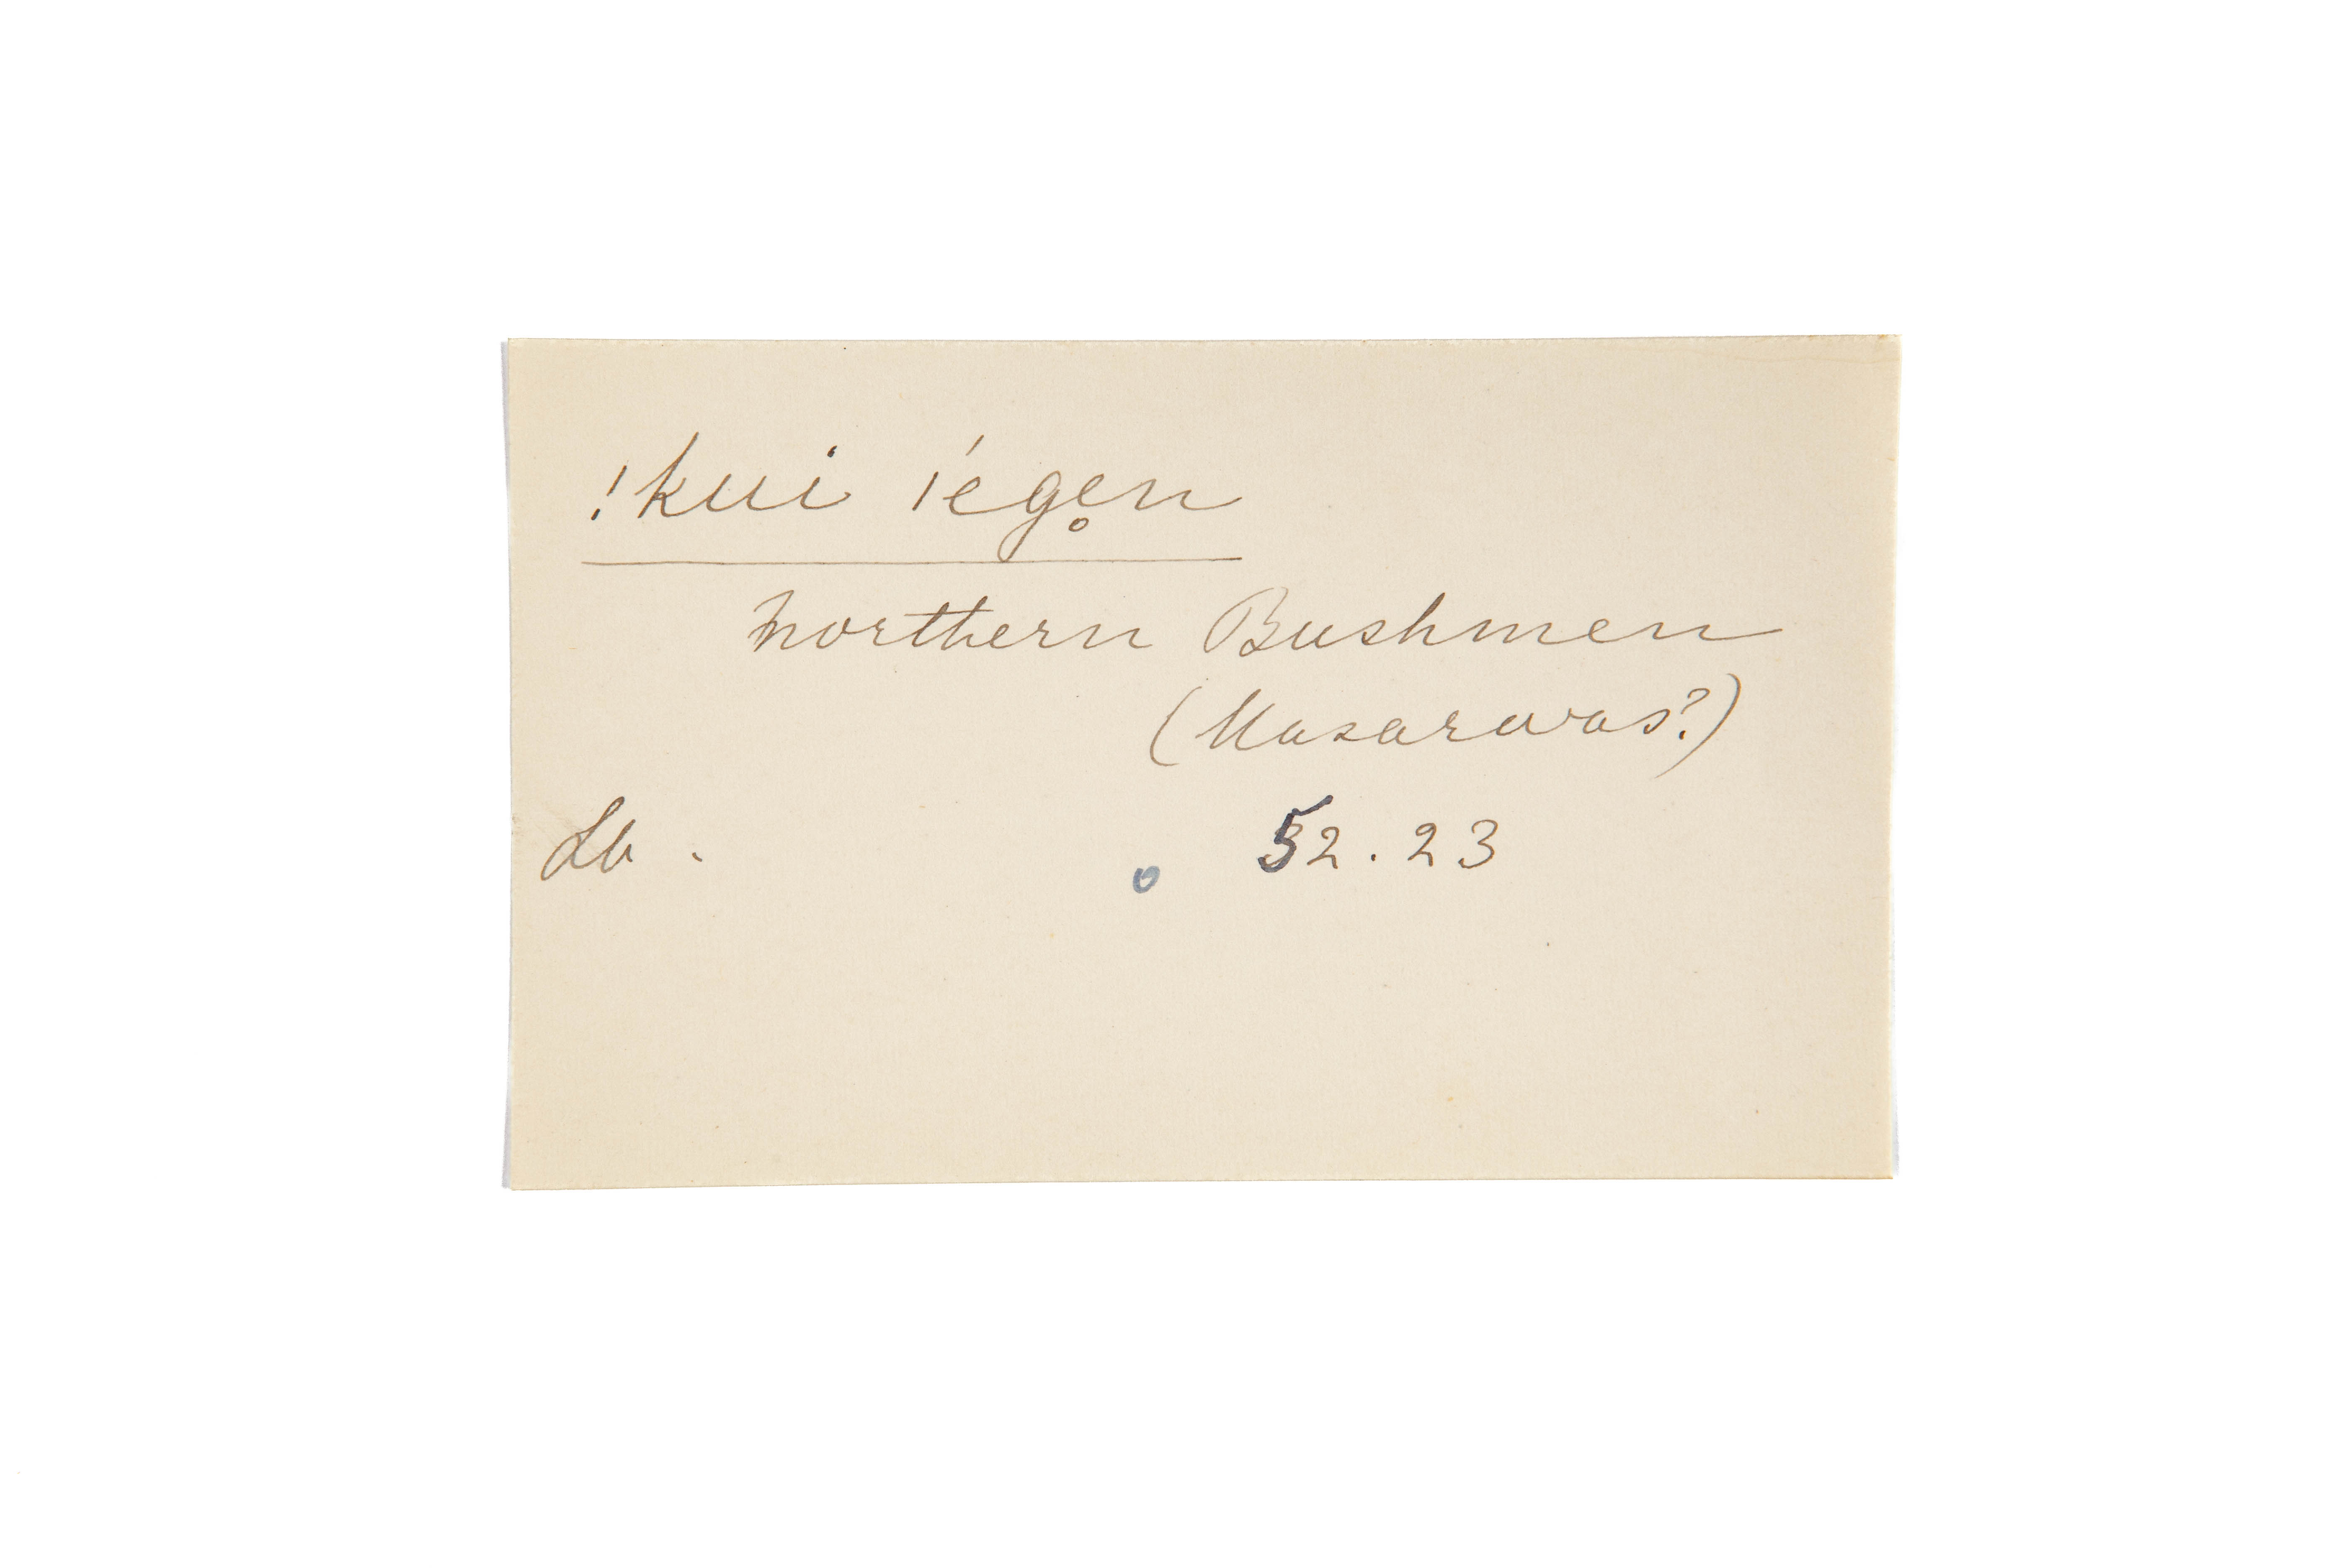 !kui |égen
Northern Bushmen
(Masarwas?)
Lb . 52.23